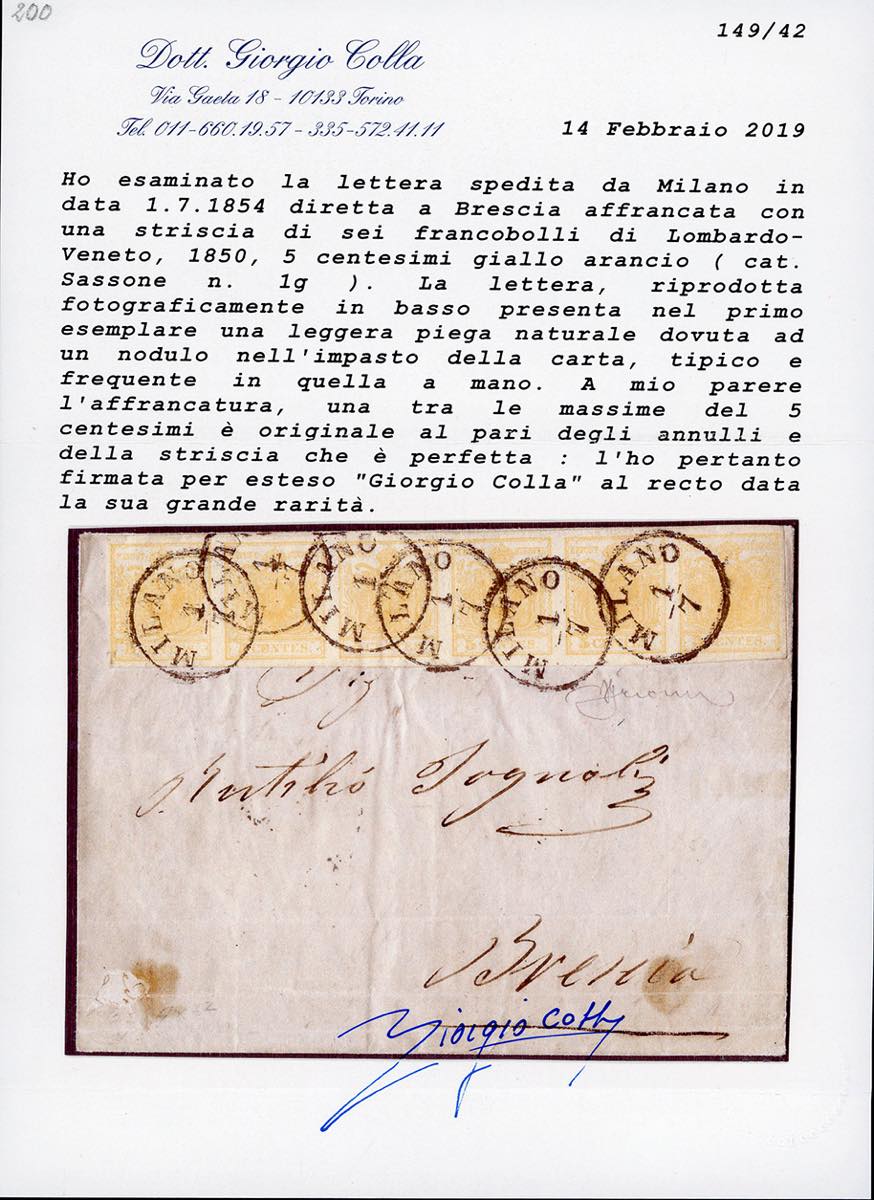 200
149/42
Dott. Giorgio Colla
Via Gaeta 18 - 10133 Torino
Tel. 011-660.19.57 - 335-572.11.11
14 Febbraio 2019
Ho esaminato la lettera spedita da Milano in
data 1.7.1854 diretta a Brescia affrancata con
una striscia di sei francobolli di Lombardo-
Veneto, 1850, 5 centesimi giallo arancio ( cat.
Sassone n. 1g ). La lettera, riprodotta
fotograficamente in basso presenta nel primo
esemplare una leggera piega naturale dovuta ad
un nodulo nell'impasto della carta, tipico e
frequente in quella a mano. A mio parere
l'affrancatura, una tra le massime del 5
centesimi è originale al pari degli annulli e
della striscia che è perfetta : l'ho pertanto
firmata per esteso "Giorgio Colla" al recto data
la sua grande rarità.
MILANO 1/7
MILANO 1/7
MILANO 1/7
MILANO 1/7
MILANO 1/7
MILANO 1/7
CENTES. CENTES.
Rutilio
Brescia
Giorgio Colla